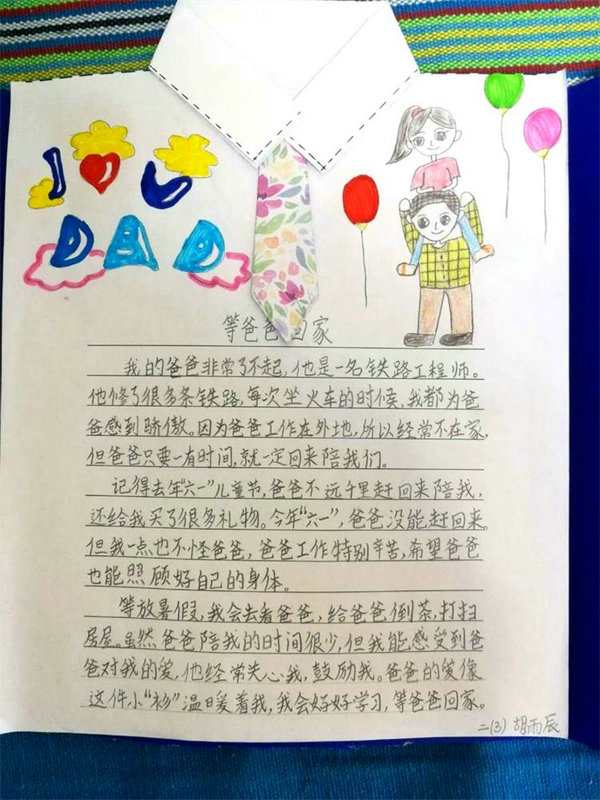 I ❤ U
DAD
等爸爸回家
我的爸爸非常了不起,他是一名铁路工程师。
他修了很多条铁路,每次坐火车的时候,我都为爸
爸感到骄傲。因为爸爸工作在外地,所以经常不在家,
但爸爸只要一有时间,就一定回来陪我们。
记得去年“六一”儿童节,爸爸不远千里赶回来陪我,
还给我买了很多礼物。今年“六一”,爸爸没能赶回来。
但我一点也不怪爸爸,爸爸工作特别辛苦,希望爸爸
也能照顾好自己的身体。
等放暑假,我会去看爸爸,给爸爸倒茶,打扫
房屋。虽然爸爸陪我的时间很少,但我能感受到爸
爸对我的爱,他经常关心我,鼓励我。爸爸的爱像
这件小“衫”温暖着我,我会好好学习,等爸爸回家。
二(3) 胡雨辰